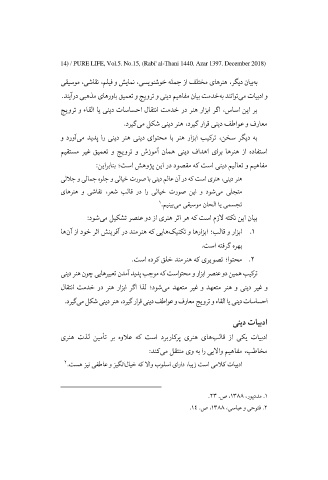 (4) / PURE LIFE, Vol.5. No.15, (Rabi' al-Thani 1440. Azar 1397. December 2018)
به‌بیان دیگر، هنرهای مختلف از جمله خوشنویسی، نمایش و فیلم، نقاشی، موسیقی
و ادبیات می‌توانند به‌خدمت بیان مفاهیم دینی و ترویج و تعمیق باورهای مذهبی درآیند.
بر این اساس، اگر ابزار هنر در خدمت انتقال احساسات دینی یا القاء و ترویج
معارف و عواطف دینی قرار گیرد، هنر دینی شکل می‌گیرد.
به دیگر سخن، ترکیب ابزار هنر با محتوای دینی هنر دینی را پدید می‌آورد و
استفاده از هنرها برای اهداف دینی همان آموزش و ترویج و تعمیق غیر مستقیم
مفاهیم و تعالیم دینی است که مقصود در این پژوهش است؛ بنابراین:
هنر دینی، هنری است که در آن عالم دینی با صورت خیالی و جلوه جمالی و جلالی
متجلی می‌شود و این صورت خیالی را در قالب شعر، نقاشی و هنرهای
تجسمی یا الحان موسیقی می‌بینیم.۱
بیان این نکته لازم است که هر اثر هنری از دو عنصر تشکیل می‌شود:
۱. ابزار و قالب؛ ابزارها و تکنیک‌هایی که هنرمند در آفرینش اثر خود از آن‌ها
بهره گرفته است.
۲. محتوا؛ تصویری که هنرمند خلق کرده است.
ترکیب همین دو عنصر ابزار و محتواست که موجب پدید آمدن تعبیرهایی چون هنر دینی
و غیر دینی و هنر متعهد و غیر متعهد می‌شود؛ لذا اگر ابزار هنر در خدمت انتقال
احساسات دینی یا القاء و ترویج معارف و عواطف دینی قرار گیرد، هنر دینی شکل می‌گیرد.
ادبیات دینی
ادبیات یکی از قالب‌های هنری پرکاربرد است که علاوه بر تأمین لذت هنری
مخاطب، مفاهیم والایی را به وی منتقل می‌کند:
ادبیات کلامی است زیبا، دارای اسلوب والا که خیال‌انگیز و عاطفی نیز هست.۲
۱. مددپور، ۱۳۸۸، ص. ۲۳.
۲. فتوحی و عباسی، ۱۳۸۸، ص. ۱۴.